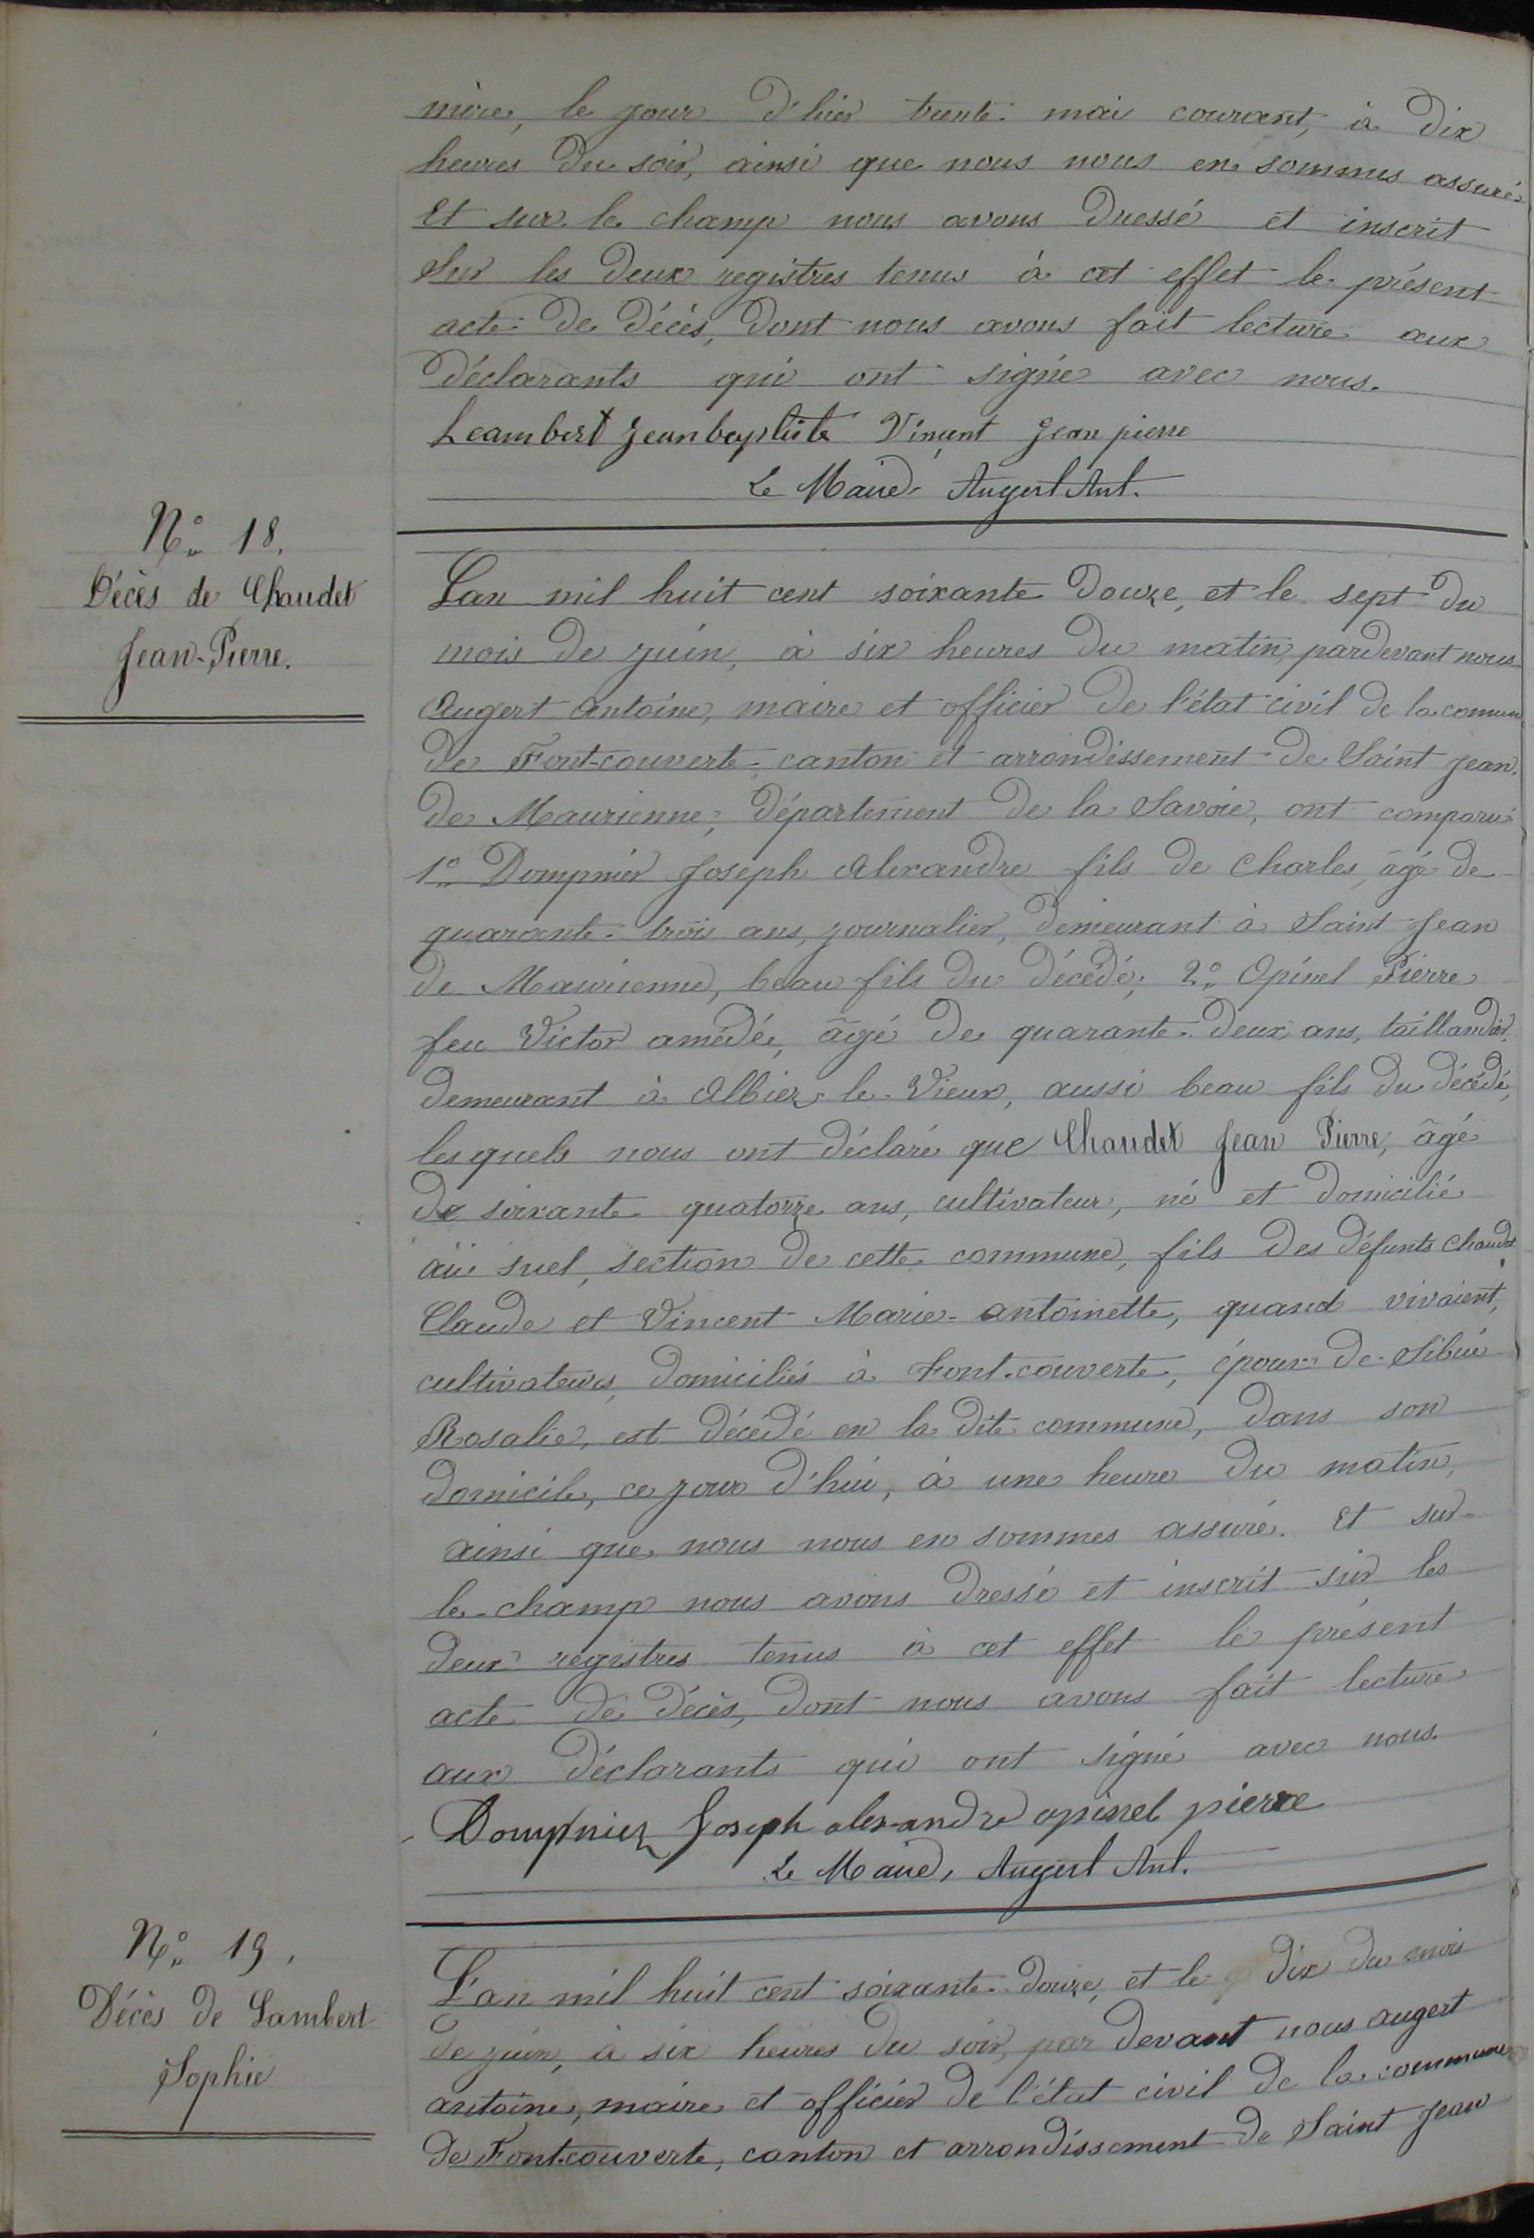 mère, le jour d'hier trente mai courant, à dix
heures du soir, ainsi que nous nous en sommes assuré.
Et sur le champ nous avons dressé et inscrit
sur les deux registres tenus à cet effet le présent
acte de décès, dont nous avons fait lecture aux
déclarants qui ont signé avec nous.
Leambert Jeanbaptiste Vincent Jean pierre
Le Maire, Augert Ant.
N.° 18.
Décès de Chaudet
Jean-Pierre.
L'an mil huit cent soixante douze, et le sept du
mois de juin, à six heures du matin, pardevant nous
Augert Antoine, maire et officier de l'état civil de la comune
de Font-couverte, canton et arrondissement de Saint Jean
de Maurienne, département de la Savoie, ont comparu:
1.° Dompnier Joseph Alexandre fils de Charles, âgé de
quarante-trois ans, journalier, demeurant à Saint Jean
de Maurienne, beau fils du décédé; 2.° Opinel Pierre
feu Victor amédée, âgé de quarante-deux ans, taillandier,
demeurant à Albiez-le-Vieux, aussi beau fils du décédé,
lesquels nous ont déclaré que Chaudet Jean Pierre, âgé
de soixante quatorze ans, cultivateur, né et domicilié
au suel, section de cette commune, fils des défunts Chaudet
Claude et Vincent Marie-antoinette, quand vivaient,
cultivateurs, domiciliés à Font-couverte, époux de Sibué
Rosalie, est décédé en la dite commune, dans son
domicile, ce jour d'hui, à une heure du matin,
ainsi que nous nous en sommes assuré. Et sur
le champ nous avons dressé et inscrit sur les
deux registres tenus à cet effet le présent
acte de décès, dont nous avons fait lecture
aux déclarants qui ont signé avec nous.
Dompnier Joseph alexandre opinel pierre
Le Maire, Augert Ant.
N.° 19.
Décès de Lambert
Sophie
L'an mil huit cent soixante-douze, et le dix du mois
de juin, à six heures du soir, par devant nous augert
antoine, maire et officier de l'état civil de la commune
de Fontcouverte, canton et arrondissement de Saint Jean